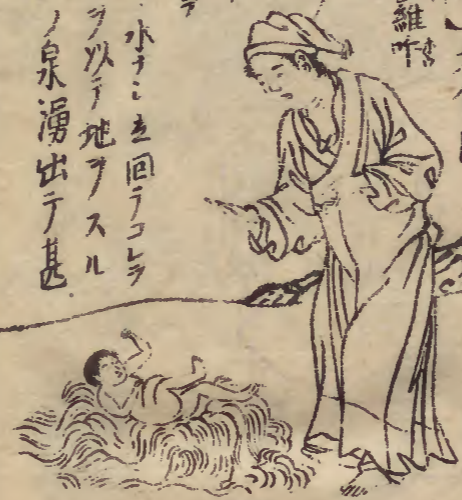 羅吽
水ナシ立回テコレヲ
ヲ以テ地ヲスル
ノ泉湧出テ甚